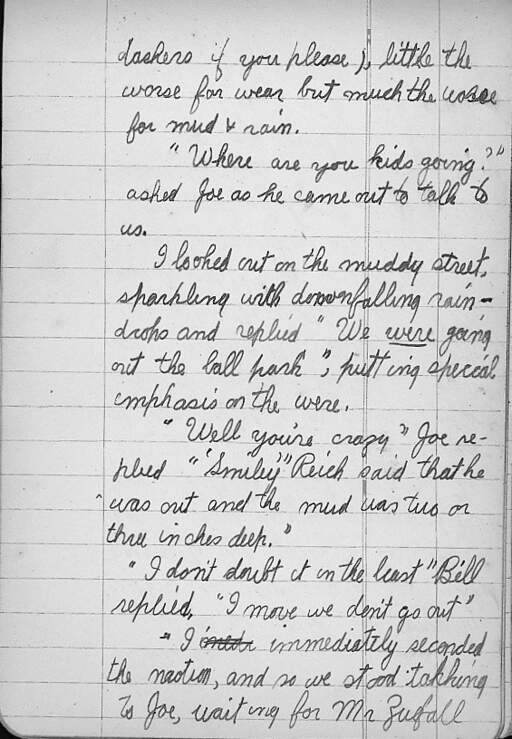 dashers if you please), little the
worse for wear but much the worse
for mud & rain.
"Where are you kids going?"
asked Joe as he came out to talk to
us.
I looked out on the muddy street,
sparkling with downfalling rain-
drops and replied "We were going
out the ball park", putting special
emphasis on the were.
"Well you're crazy" Joe re-
plied "'Smiley" Reich said that he
was out and the mud was two or
three inches deep."
"I don't doubt it in the least" Bill
replied, "I move we don't go out"
"I immediately seconded
the motion, and so we stood talking
to Joe, waiting for Mr Zufall